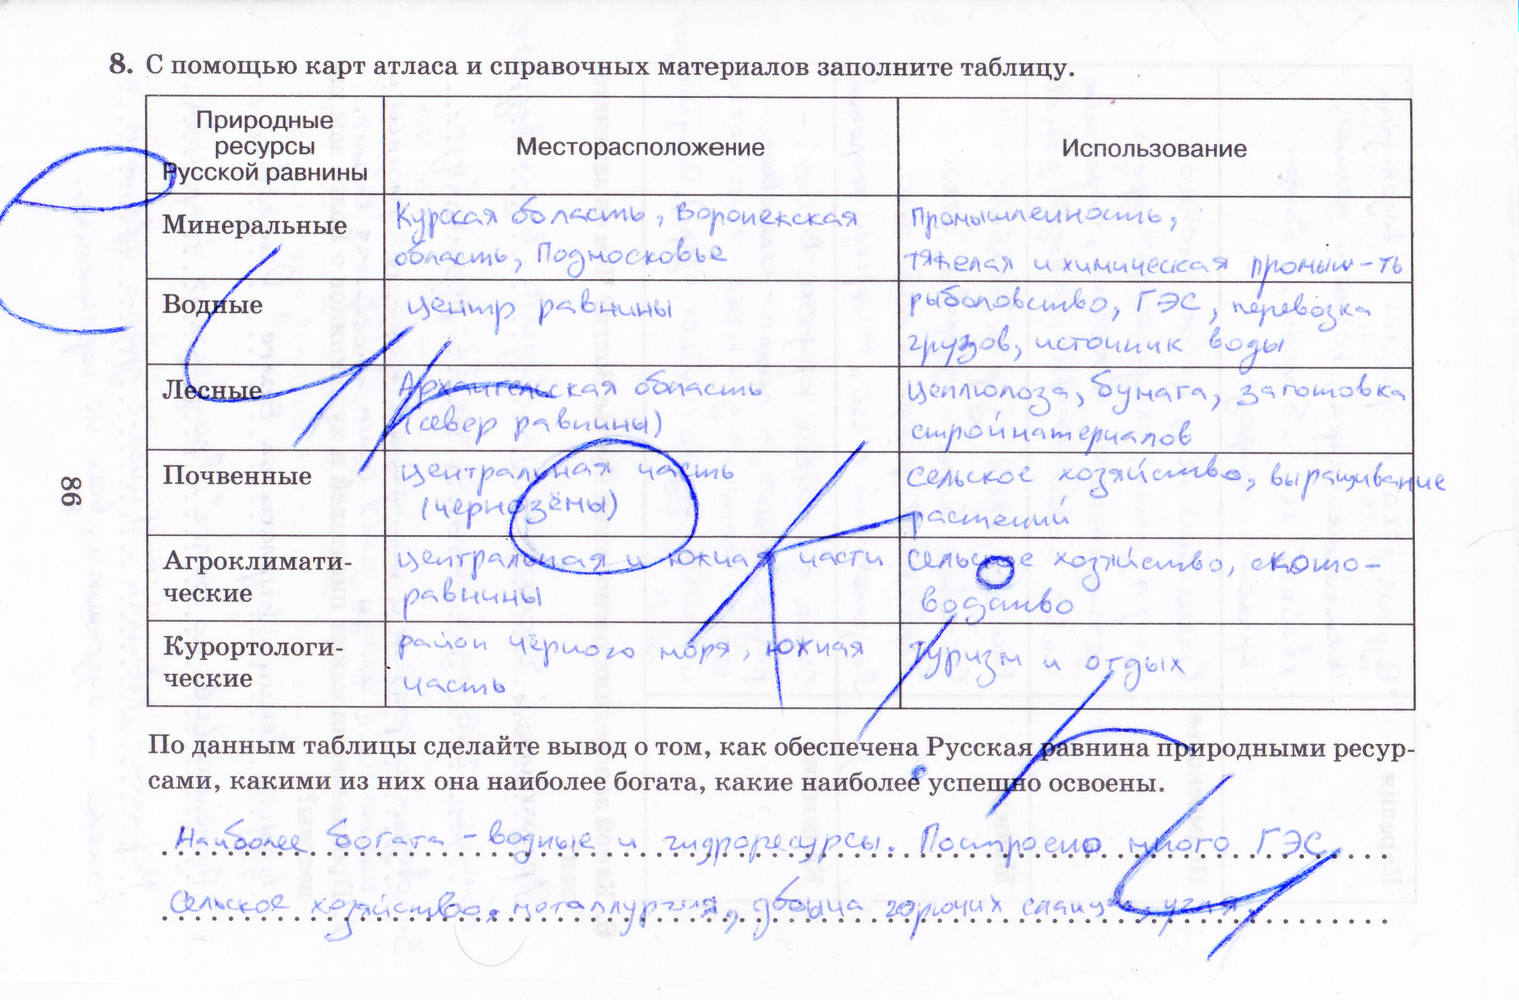 8. С помощью карт атласа и справочных материалов заполните таблицу.
Природные
ресурсы
Русской равнины
Месторасположение
Использование
Минеральные
Курская область, Воронежская
область, Подмосковье
Промышленность,
тяжелая и химическая промыш-ть
Водные
центр равнины
рыболовство, ГЭС, перевозка
грузов, источник воды
Лесные
Архангельская область
(север равнины)
целлюлоза, бумага, заготовка
стройматериалов
Почвенные
центральная часть
(чернозёмы)
сельское хозяйство, выращивание
растений
Агроклимати-
ческие
центральная и южная части
равнины
сельское хозяйство, ското-
водство
Курортологи-
ческие
район Чёрного моря, южная
часть
туризм и отдых
По данным таблицы сделайте вывод о том, как обеспечена Русская равнина природными ресур-
сами, какими из них она наиболее богата, какие наиболее успешно освоены.
Наиболее богата - водные и гидроресурсы. Построено много ГЭС.
Сельское хозяйство, металлургия, добыча горючих сланцев, угля.
86